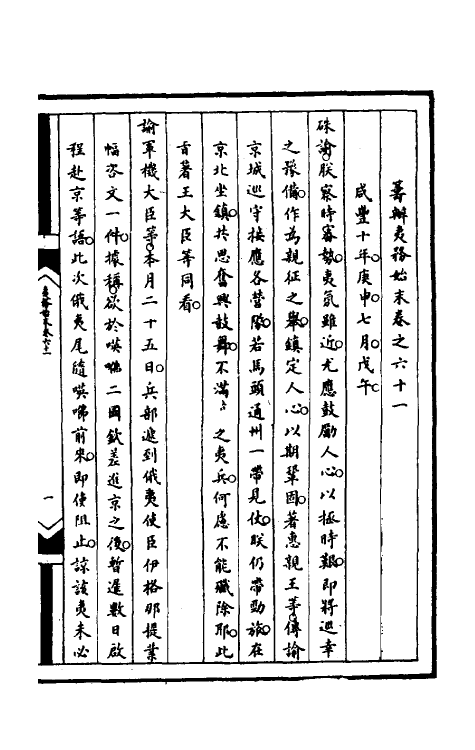 籌辦夷務始末卷之六十一
咸豐十年庚申七月戊午
硃諭朕察時審勢夷氛雖近尤應鼓勵人心以拯時艱即將巡幸
之豫備作為親征之舉鎮定人心以期鞏固著惠親王等傳諭
京城巡守接應各營隊若馬頭通州一帶見仗朕仍帶勁旅在
京北坐鎮共思奮興鼓舞不滿之夷兵何慮不能殲除耶此
旨著王大臣等同看
諭軍機大臣等本月二十五日兵部遞到俄夷使臣伊格那提業
幅咨文一件據稱欲於㖸咈二國欽差進京之後暫遲數日啟
程赴京等語此次俄夷尾隨㖸咈前來即使阻止諒該夷未必
夷務始末卷六十一
一